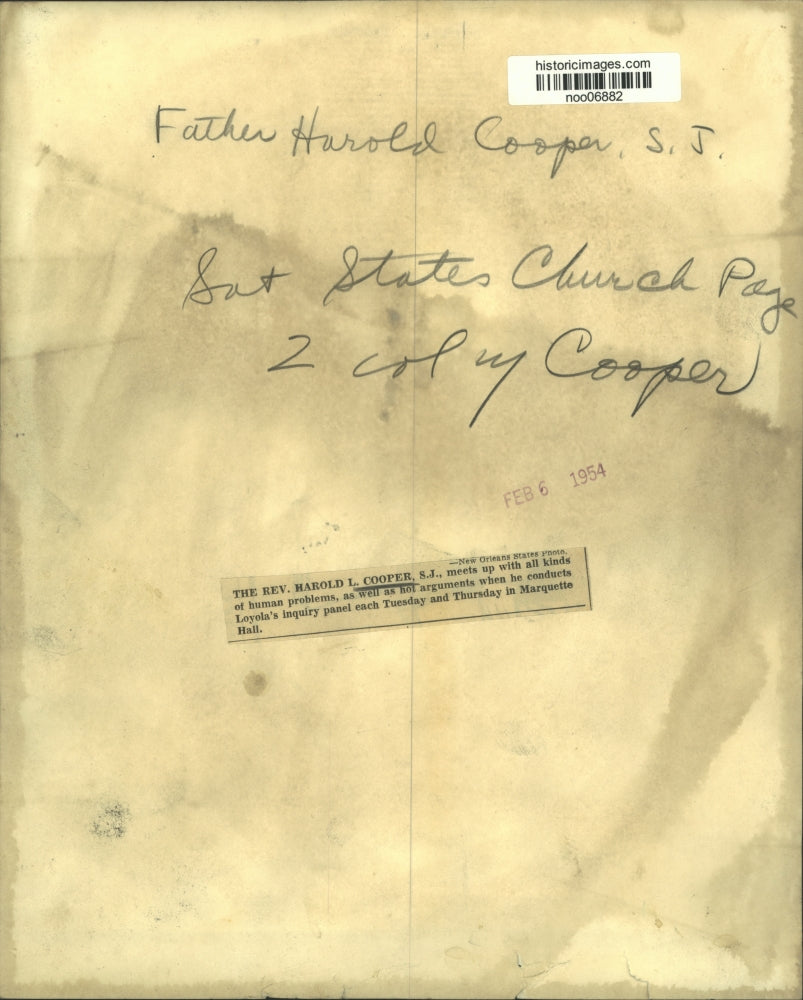 historicimages.com
noo06882
Father Harold Cooper, S.J.
Sat States Church Page
2 col w/ Cooper
FEB 6 1954
—New Orleans States Photo.
THE REV. HAROLD L. COOPER, S.J., meets up with all kinds
of human problems, as well as hot arguments when he conducts
Loyola's inquiry panel each Tuesday and Thursday in Marquette
Hall.